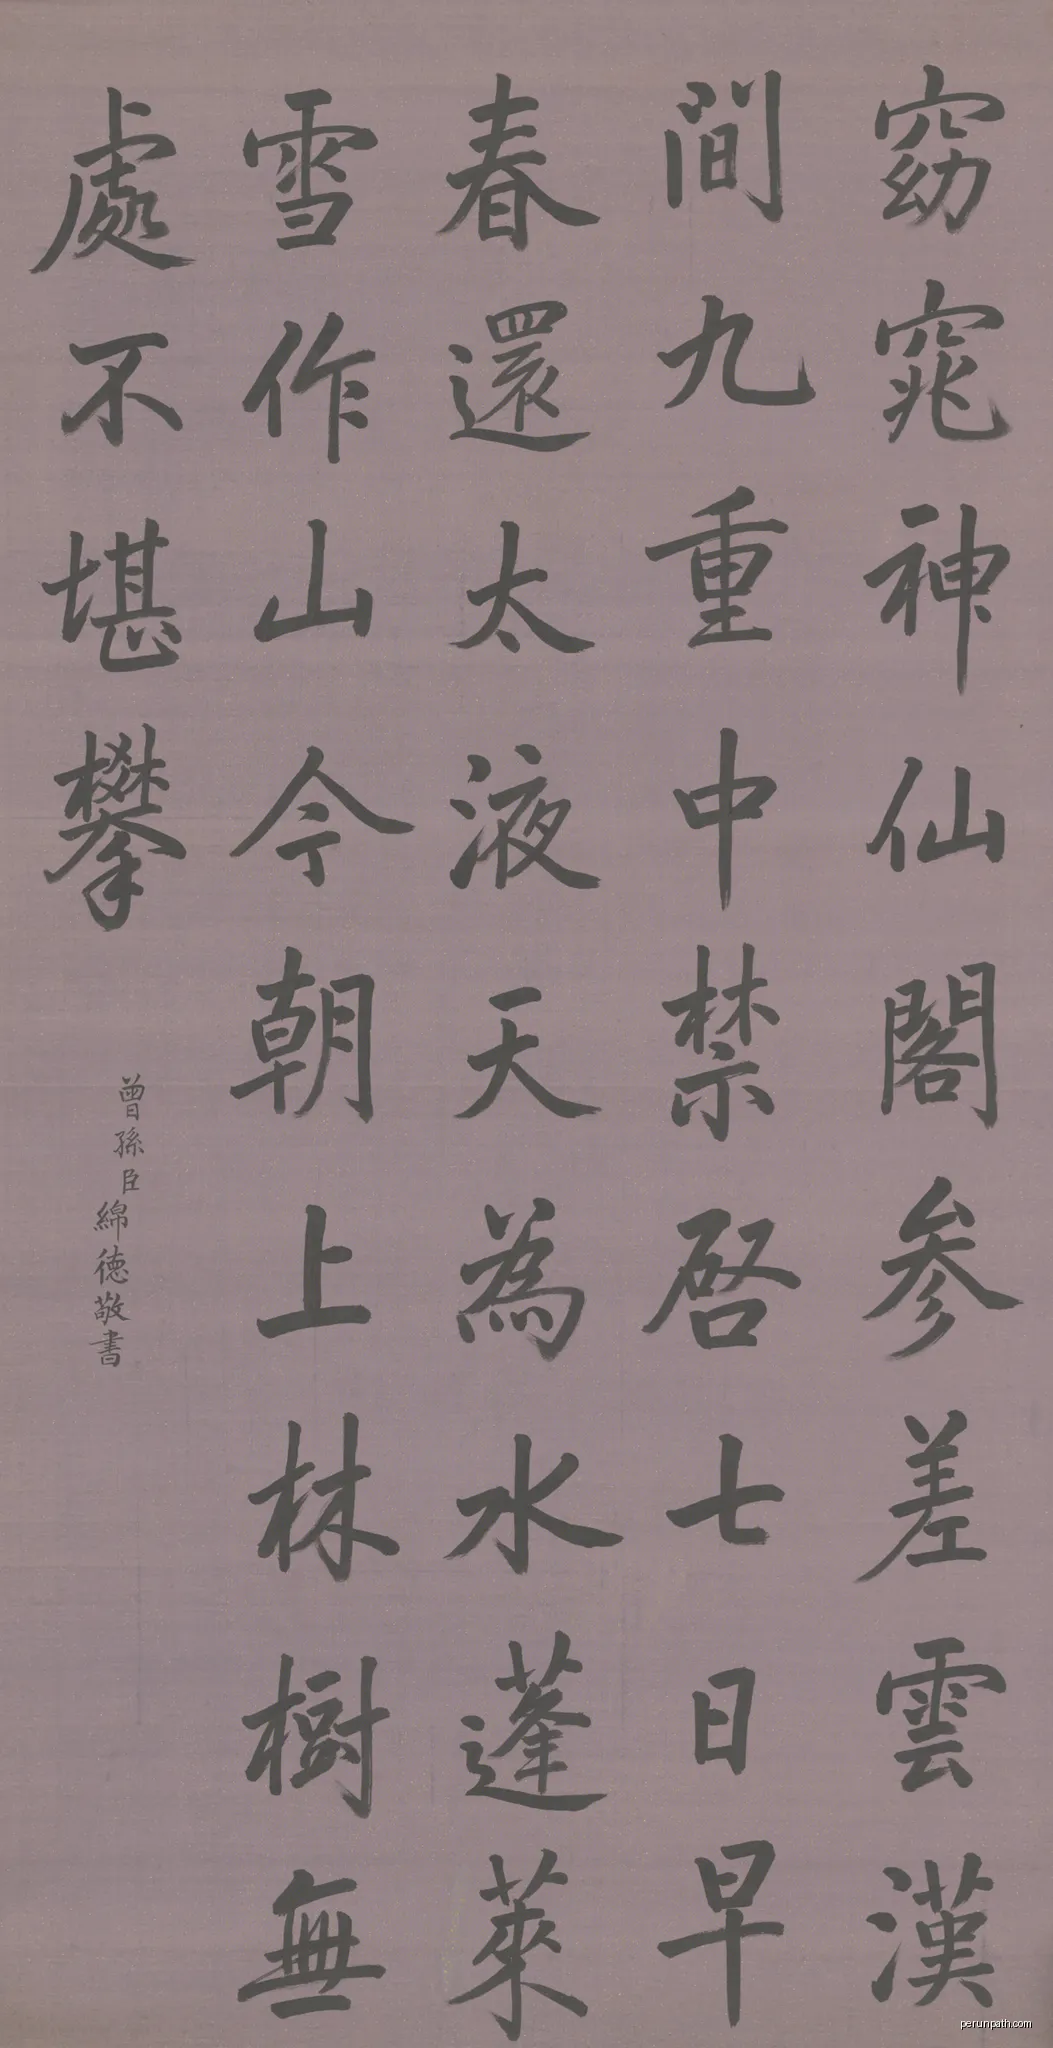 窈窕神仙閣參差雲漢
間九重中禁啓七日早
春還太液天為水蓬萊
雪作山今朝上林樹無
處不堪攀
曾孫臣綿德敬書
perunpath.com